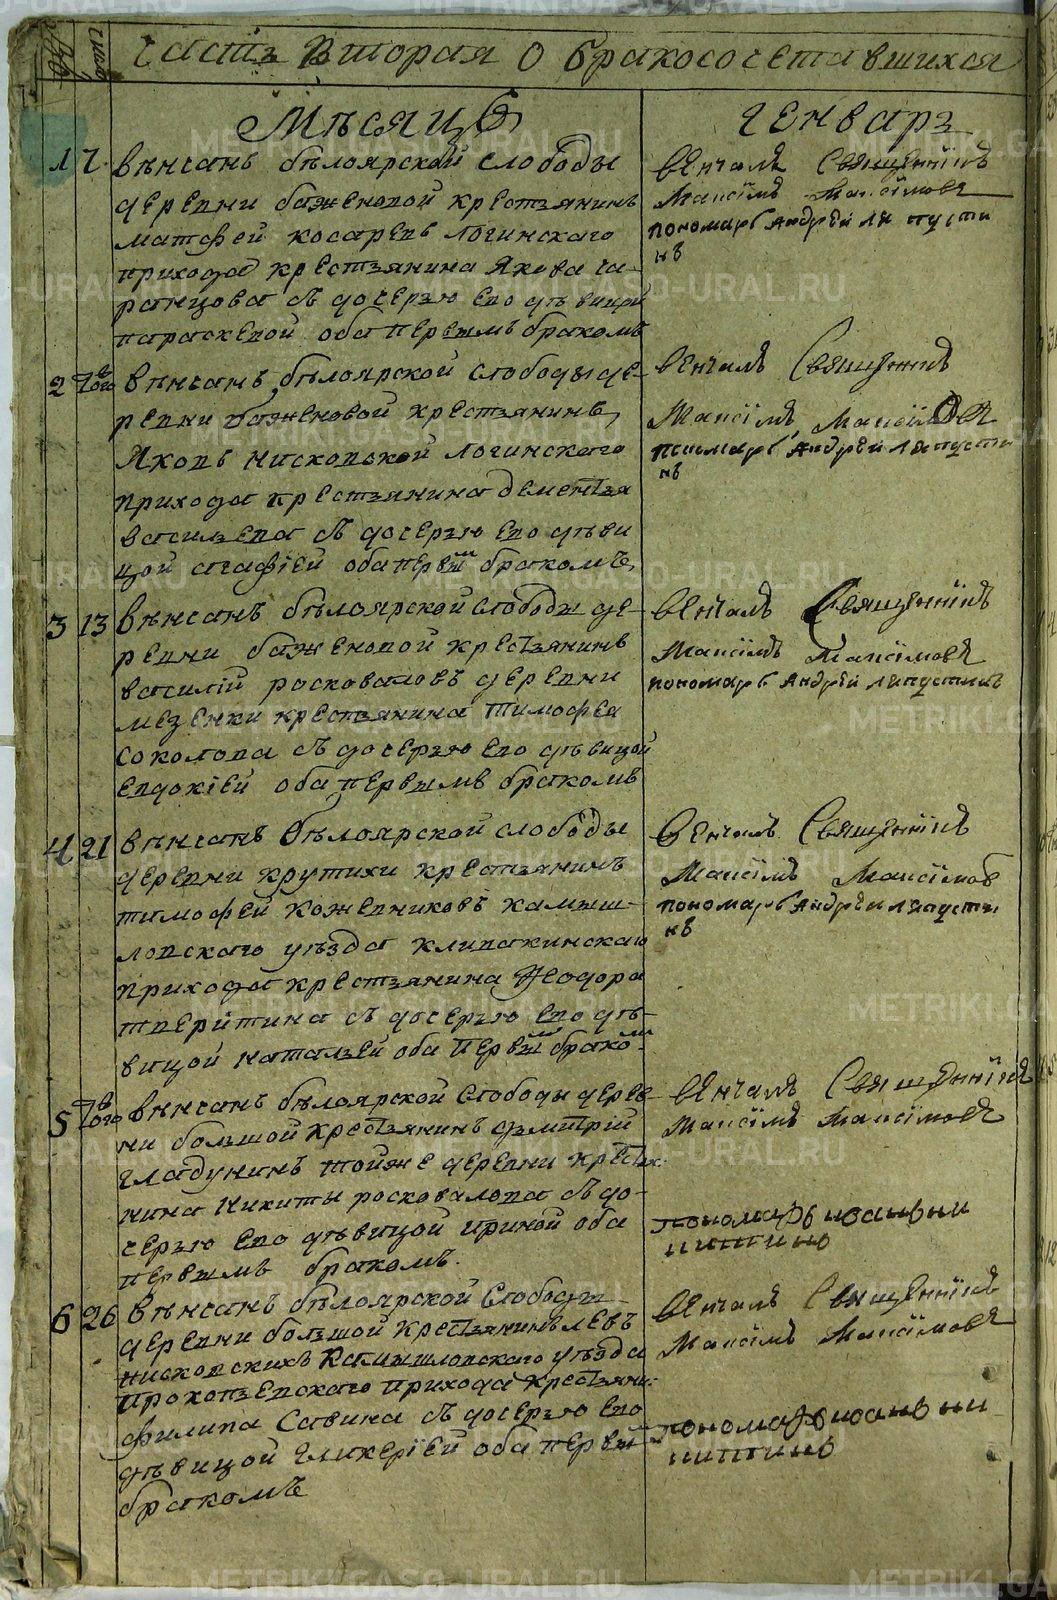 часть вторая о бракосочетавшихся
число
Мѣсяцъ
Генварь
1 7 вѣнчанъ бѣлоярской слободы
деревни баженовой крестьянинъ
матфей косаревъ логинскаго
прихода крестьянина Якова
съ дочерью ево девицой
параскевой оба первымъ бракомъ
венчалъ Священникъ
Максїмъ Максїмовъ
пономарь Андрей Ляпусти
нъ
2 того вѣнчанъ бѣлоярской слободы де-
ревни баженовой крестьянинъ
Яковъ нисковской логинскаго
прихода крестьянина дементья
васильева съ дочерью ево дѣви
цой агафїей оба первым бракомъ
венчалъ Священникъ
Максїмъ Максїмовъ
пономарь Андрей Ляпусти
нъ
3 13 вѣнчанъ бѣлоярской слободы де-
ревни баженовой крестьянинъ
василїй росковаловъ деревни
мезенки крестьянина тимофея
соколова съ дочерью ево дѣвицой
евдокїей оба первымъ бракомъ
венчалъ Священникъ
Максїмъ Максїмовъ
пономарь Андрей Ляпустинъ
4 21 вѣнчанъ бѣлоярской слободы
деревни крутихи крестьянинъ
тимофей кожевниковъ камыш-
ловскаго уѣзда клевакинскаго
прихода крестьянина Феодора
тверитина съ дочерью ево дѣ-
вицой натальей оба первым браком
венчалъ Священникъ
Максїмъ Максїмовъ
пономарь Андрей Ляпусти
нъ
5 того вѣнчанъ бѣлоярской слободы дерев-
ни большой крестьянинъ дмитрїй
гладунинъ тойже деревни крестья-
нина никиты росковалова съ до-
черью ево дѣвицой ириной оба
первымъ бракомъ.
венчалъ Священникъ
Максїмъ Максїмовъ
пономарь иоанъ ни
китинъ
6 26 вѣнчанъ бѣлоярской слободы
деревни большой крестьянинъ левъ
нисковскихъ камышловскаго уѣзда
прокопьевскаго прихода крестьяни-
филипа Савина съ дочерью ево
дѣвицой гликерїей оба первым
бракомъ
венчалъ Священникъ
Максїмъ Максїмовъ
пономарь иоанъ ни
китинъ
METRIKI.GASO-URAL.RU